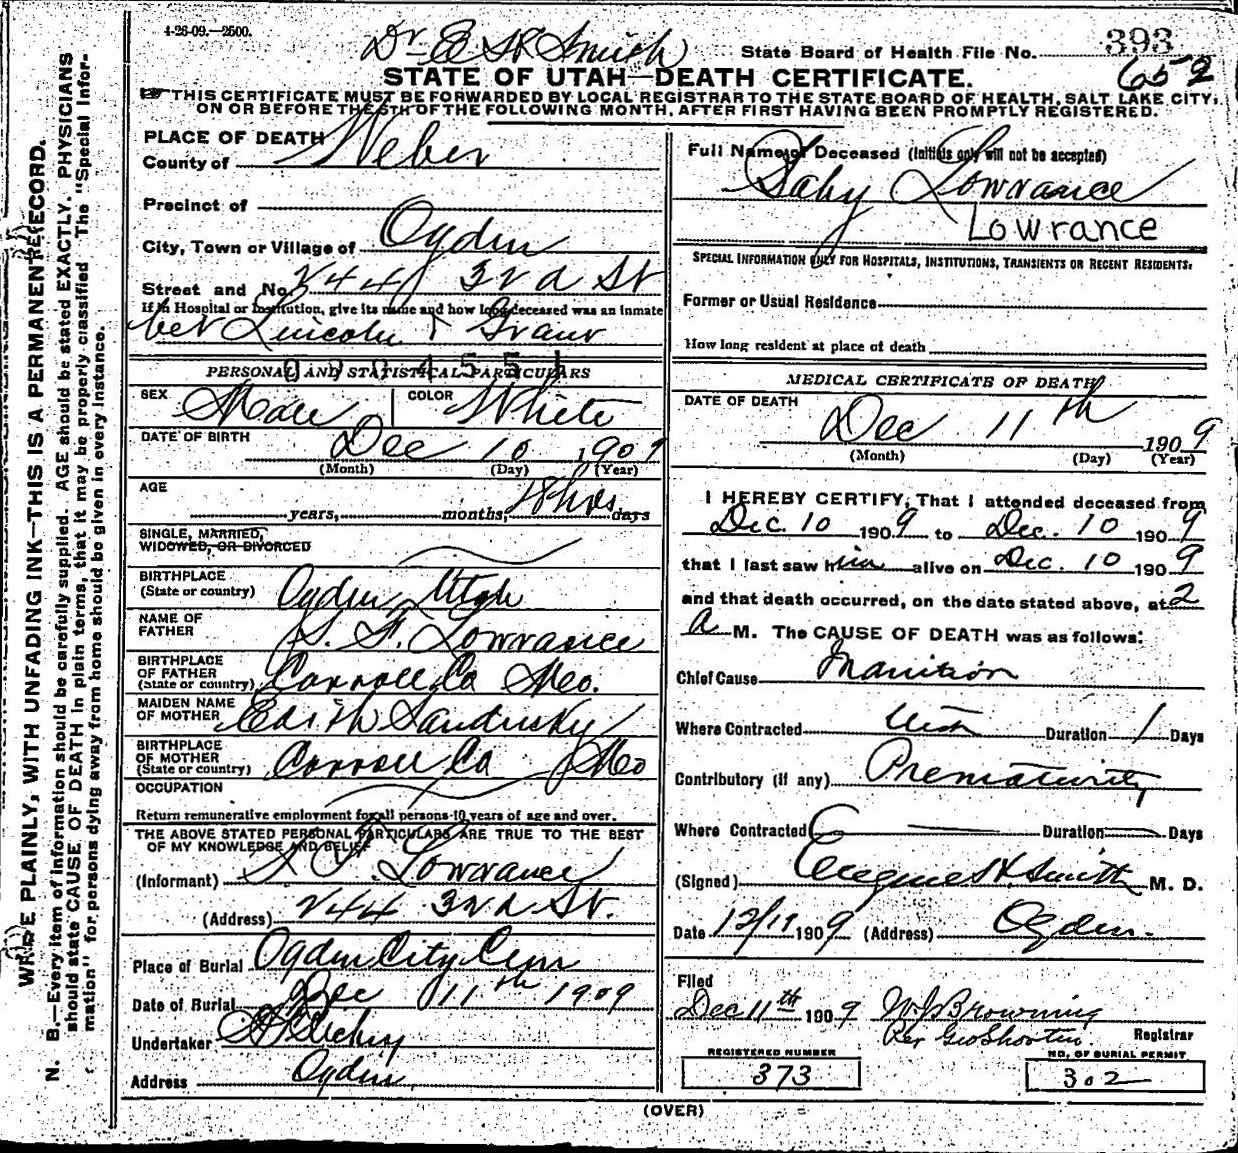 4-26-09.—2500.
Dr E H Smith
State Board of Health File No. 393
652
STATE OF UTAH—DEATH CERTIFICATE.
THIS CERTIFICATE MUST BE FORWARDED BY LOCAL REGISTRAR TO THE STATE BOARD OF HEALTH, SALT LAKE CITY,
ON OR BEFORE THE 5TH OF THE FOLLOWING MONTH, AFTER FIRST HAVING BEEN PROMPTLY REGISTERED.
WRITE PLAINLY, WITH UNFADING INK—THIS IS A PERMANENT RECORD.
N. B.—Every item of information should be carefully supplied. AGE should be stated EXACTLY. PHYSICIANS
should state CAUSE OF DEATH in plain terms, that it may be properly classified. The "Special Infor-
mation" for persons dying away from home should be given in every instance.
PLACE OF DEATH
County of Weber
Precinct of
City, Town or Village of Ogden
Street and No. 244 32nd St
If in Hospital or Institution, give its name and how long deceased was an inmate
bet Lincoln & Grant
PERSONAL AND STATISTICAL PARTICULARS
SEX Male COLOR White
DATE OF BIRTH Dec 10 1909
(Month) (Day) (Year)
AGE years, months, 18 hrs days
SINGLE, MARRIED,
WIDOWED, OR DIVORCED
BIRTHPLACE
(State or country) Ogden Utah
NAME OF
FATHER S. F. Lowrance
BIRTHPLACE
OF FATHER
(State or country) Carroll Co Mo.
MAIDEN NAME
OF MOTHER Edith Sandusky
BIRTHPLACE
OF MOTHER
(State or country) Carroll Co Mo
OCCUPATION
Return remunerative employment for all persons 10 years of age and over.
THE ABOVE STATED PERSONAL PARTICULARS ARE TRUE TO THE BEST
OF MY KNOWLEDGE AND BELIEF
(Informant) S F. Lowrance
(Address) 244 32nd St.
Place of Burial Ogden City Cem
Date of Burial Dec 11th 1909
Undertaker
Address Ogden
Full Name of Deceased (Initials only will not be accepted)
Baby Lowrance
Lowrance
SPECIAL INFORMATION ONLY FOR HOSPITALS, INSTITUTIONS, TRANSIENTS OR RECENT RESIDENTS:
Former or Usual Residence
How long resident at place of death
MEDICAL CERTIFICATE OF DEATH
DATE OF DEATH
Dec 11th 1909
(Month) (Day) (Year)
I HEREBY CERTIFY, That I attended deceased from
Dec. 10 1909 to Dec. 10 1909
that I last saw him alive on Dec. 10 1909
and that death occurred, on the date stated above, at 2
a M. The CAUSE OF DEATH was as follows:
Chief Cause Inanition
Where Contracted Utah Duration 1 Days
Contributory (if any) Prematurity
Where Contracted Duration Days
(Signed) Eugene H. Smith M. D.
Date 12/11 1909 (Address) Ogden.
Filed
Dec 11th 1909 W J Browning
Per Geo Shorten Registrar
REGISTERED NUMBER
373
NO. OF BURIAL PERMIT
302
(OVER)